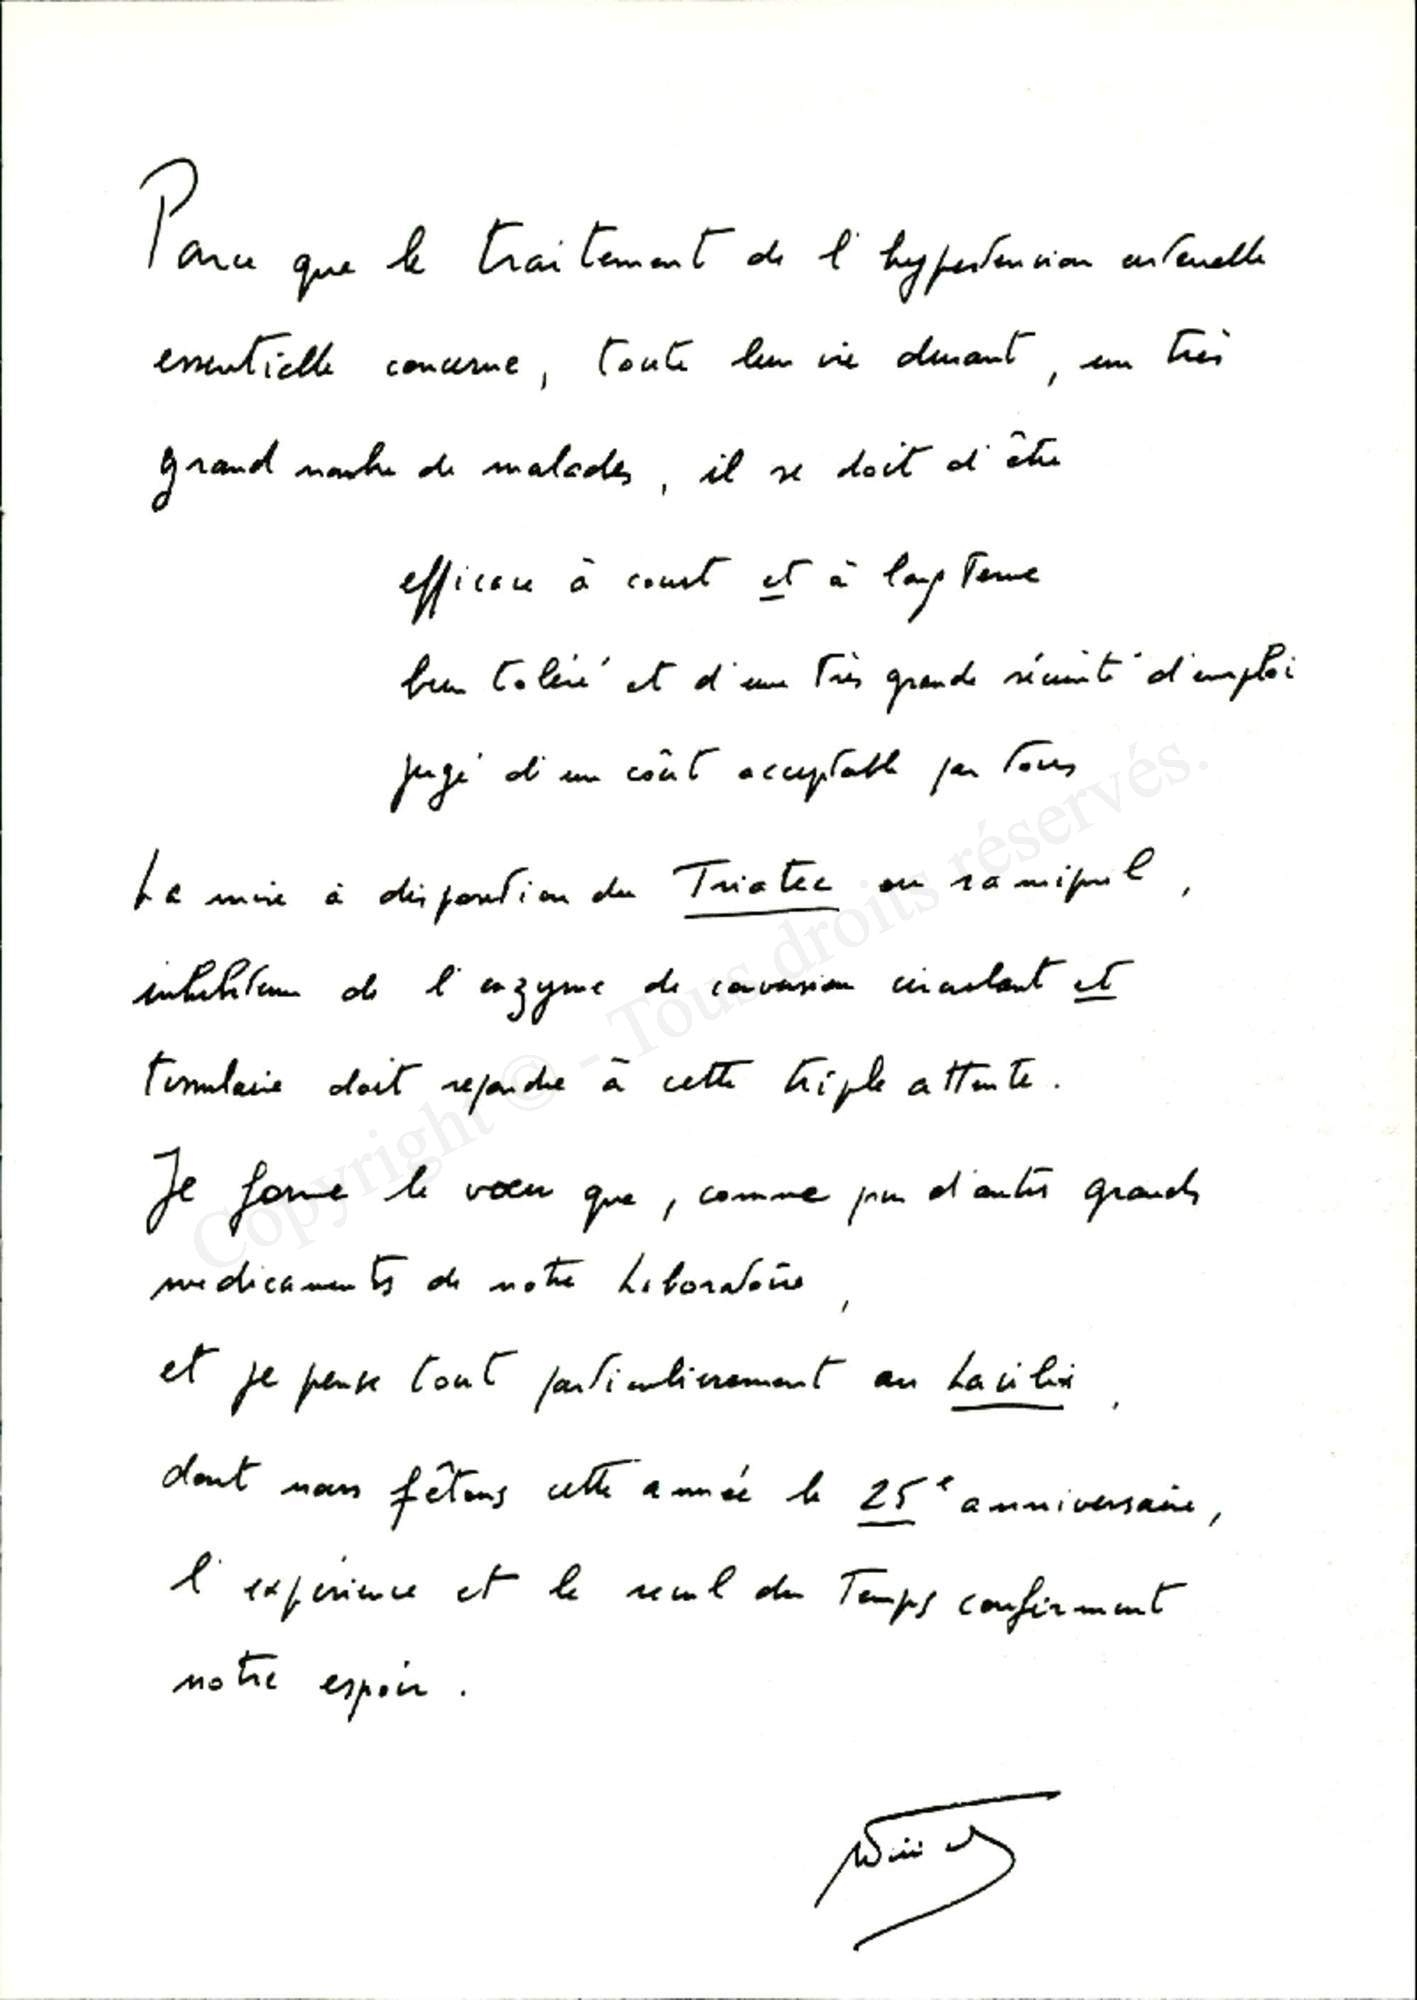 Parce que le traitement de l'hypertension artérielle
essentielle concerne, toute leur vie durant, un très
grand nombre de malades, il se doit d'être
efficace à court et à long terme
bien toléré et d'une très grande sécurité d'emploi
jugé d'un coût acceptable par tous
La mise à disposition du Triatec ou ramipril,
inhibiteur de l'enzyme de conversion circulant et
tissulaire doit repondre à cette triple attente.
Je forme le vœu que, comme pour d'autres grands
medicaments de notre Laboratoire,
et je pense tout particulierement au Lasilix,
dont nous fêtons cette année le 25e anniversaire,
l'expérience et le recul du temps confirment
notre espoir.
Copyright © - Tous droits réservés.